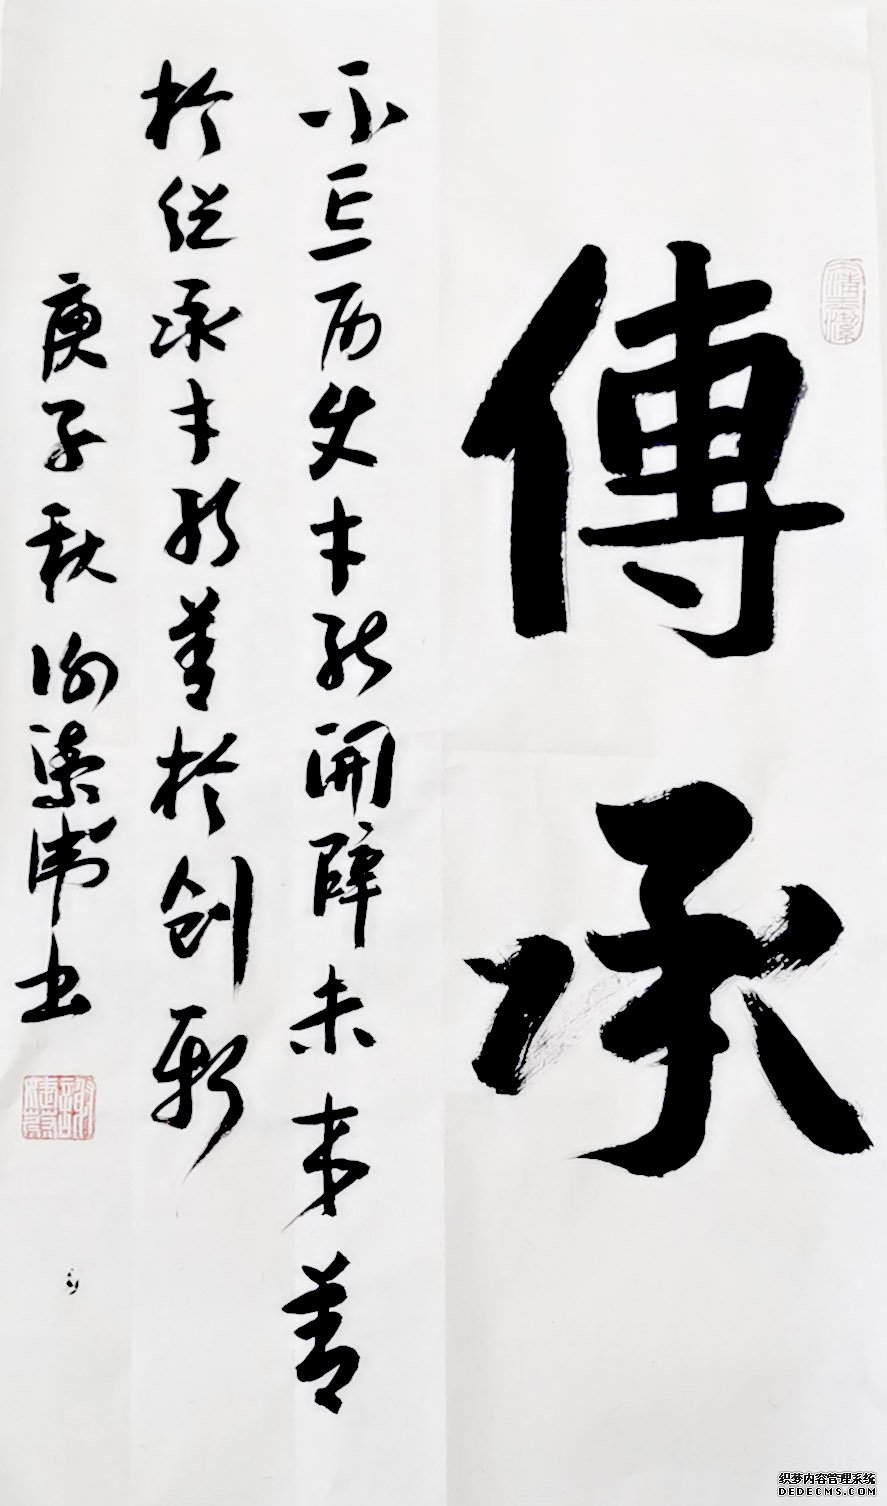 傳承
不忘历史才能開辟未来善
於继承才能善於创新
庚子秋
书
织梦内容管理系统
DEDECMS.COM